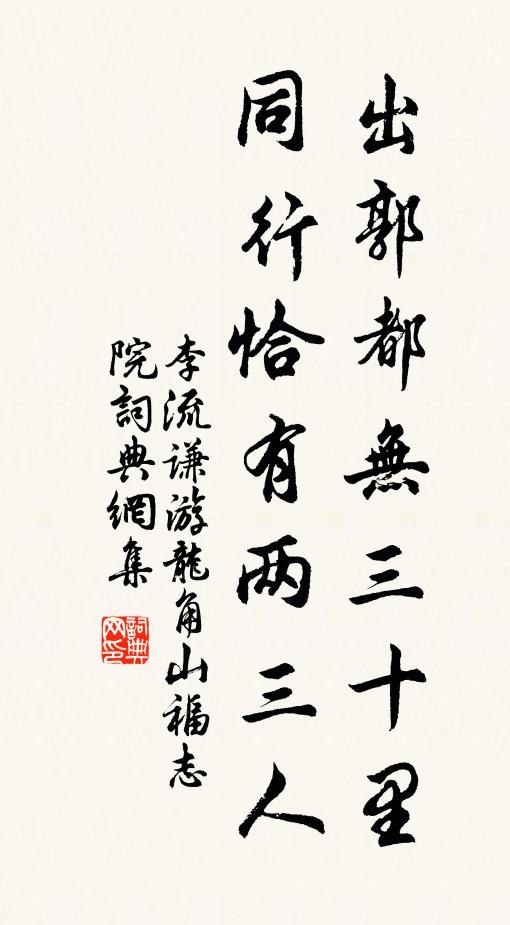 出郭都無三十里
同行恰有两三人
李流谦游龍角山福志
院詞典網集
詞典网印